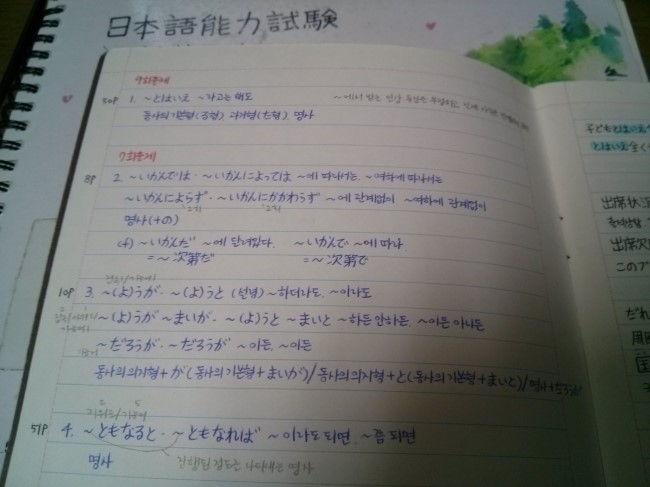 日本語能力試験
9회출제
50P 1. ~とはいえ ~라고는 해도
동사의 기본형(る형) 과거형(た형) 명사
7회출제
8P 2. ~いかんでは・~いかんによっては ~에 따라서는. ~여하에 따라서는
~いかんによらず・~いかんにかかわらず ~에 관계없이 ~여하에 관계없이
명사(+の)
(cf) ~いかんだ ~에 달려있다. ~いかんで ~에 따라
=~次第だ =~次第で
10P 3. ~(よ)うが・~(よ)うと (설령) ~하더라도. ~이라도
~(よ)うが ~まいが・~(よ)うと ~まいと ~하든 안하든. ~이든 아니든
~だろうが・~だろうが ~이든. ~이든
동사의 의지형+が(동사의 기본형+まいが)/동사의 의지형+と(동사의 기본형+まいと)/명사+
51P 4. ~ともなると・~ともなれば ~이라도 되면. ~쯤 되면
명사 나타내는 명사
子どもとはいえ
とはいえ全く
出席状況
出席次
このプ
だれ
周